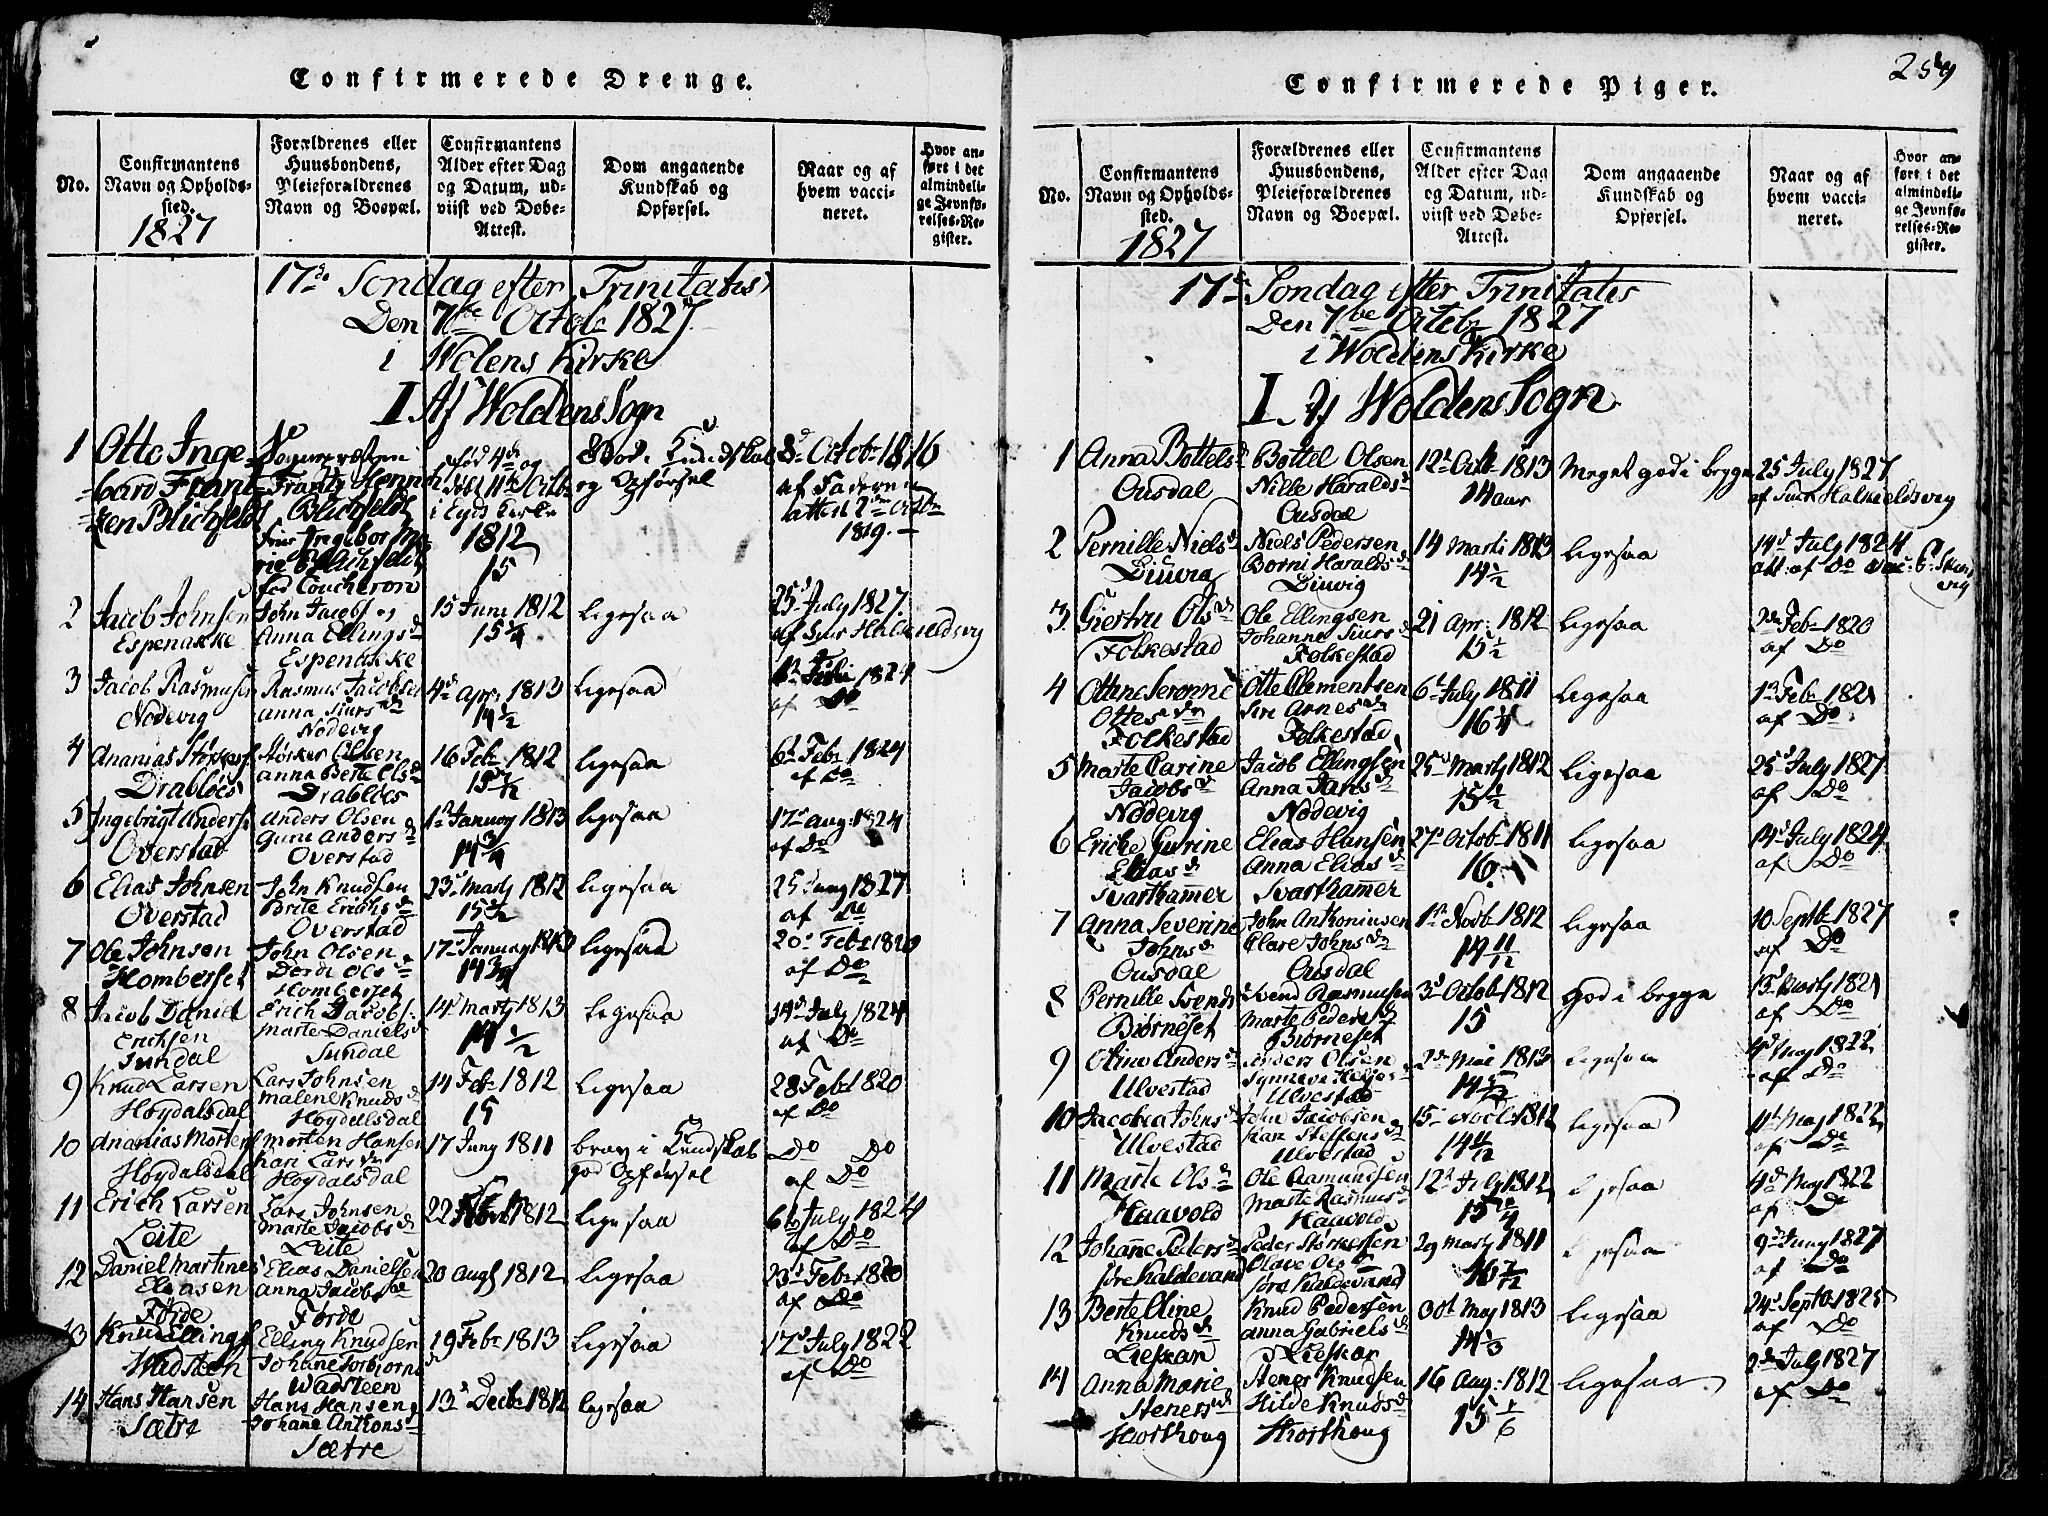 Confirmerede Drenge.
No.
Confirmantens
Navn og Opholds-
sted.
1827
Forældrenes eller
Huusbondens,
Pleieforældrenes
Navn og Boepæl.
Confirmantens
Alder efter Dag
og Datum, ud-
viist ved Døbe-
Attest.
Dom angaaende
Kundskab og
Opførsel.
Naar og af
hvem vacci-
neret.
Hvor an-
ført i det
almindeli-
ge Jevnfø-
relses-Re-
gister.
17de Søndag efter Trinitatis
Den 7de Octobr 1827
i Wolens Kirke
I Af Woldens Sogn
1 Otto Inge-
bård Frant-
zen Blichfeldt
Sogne
Frantz
Blichfeldt
Frue Ingebor Ma-
rie Blichfeldt
fød Coucheron
fød 4de og
døbt 11te Octbr
i Eyds Kirke
1812
15
God i Kundskab
og Opførsel
8de Octobr 1816
af Faderen
attest 2den Octbr
1819.
2 Jacob Johnsen
Espenakke
John Jacobs og
Anna Ellingsd
Espenakke
15 Juni 1812
15 1/4
ligesaa
25d July 1827.
af Siur Halkieldsvig
3 Jacob Rasmusen
Nodevig
Rasmus Jacobsen
Anna Siursdr
Nodevig
4d Apr: 1813
14 1/2
ligesaa
1824
af Do
4 Ananias Størkers
Drabløs
Størker Olsen
Anna Berte Olsd
Drabløs
16 Febr 1812
15 1/2
ligesaa
6d Febr 1824
af Do
5 Ingebrigt Anders
Overstad
Anders Olsen
Guru Andersd
Overstad
1d January 1813
14 3/4
ligesaa
17d Aug: 1824
af Do
6 Elias Johnsen
Overstad
John Knudsen
Brite Erichsd
Overstad
23d Marty 1812
15 1/2
ligesaa
25 1827
af Do
7 Ole Johnsen
Homberset
John Olsen
Dorde Olsd
Homberset
17d January 1813
14 3/4
ligesaa
20d Febr 1820
af Do
8 Jacob Daniel
Erichsen
Sundal
Erich Jacobs:
Marte Danielsd
Sundal
14d Marty 1813
14 1/2
ligesaa
14d July 1824
af Do
9 Knud Larsen
Høydalsdal
Lars Johnsen
Malene Knudsd
Høydalsdal
14 Febr 1812
15
ligesaa
28 Febr 1820
af Do
10 Ananias Mortens
Høydalsdal
Morten Hansen
Kari Larsdr
Høydalsdal
17 Juny 1811
brav i Kundskab
god Opførsel
Do Do
af Do
11 Erich Larsen
Leite
Lars Johnsen
Marte Jacobsd
Leite
22 1812
ligesaa
6d July 1824
af Do
12 Daniel Martines
Eliasen
Førde
Elias Danielsen
Anna Jacobsdr
Førde
20 Augt 1812
ligesaa
23d Febr 1820
af Do
13 Knud Ellings
Wadsteen
Elling Knudsen
Johane Torbjornsd
Wadsteen
19 Febr 1813
ligesaa
17d July 1822
af Do
14 Hans Hansen
Sætre
Hans Hansen
Johane Antonsd
Sætre
13d Decbr 1812
ligesaa
Confirmerede Piger.
259
No.
Confirmantens
Navn og Opholds-
sted.
1827
Forældrenes eller
Huusbondens,
Pleieforældrenes
Navn og Boepæl.
Confirmantens
Alder efter Dag
og Datum, ud-
viist ved Døbe-
Attest.
Dom angaaende
Kundskab og
Opførsel.
Naar og af
hvem vacci-
neret.
Hvor an-
ført i det
almindeli-
ge Jevnfø-
relses-Re-
gister.
17de Søndag efter Trinitatis
Den 7de Octobr 1827
i Woldens Kirke
I Af Woldens Sogn
1 Anna Bottelsd
Ousdal
Bottel Olsen
Nille Haraldsd
Ousdal
12d Octb 1813
14 aar
Meget god i begge
25 July 1827
af Siur Halkieldsvig
2 Pernille Nielsd
Diuvig
Niels Pedersen
Borni Haraldsd
Diuvig
14 Marti 1813
14 1/2
ligesaa
14d July 1824
att: af Do
3. Giertru Olsdr
Folkestad
Ole Ellingsen
Johanne Siursd
Folkestad
21 Apr: 1812
15 1/2
ligesaa
Febr 1820
af Do
4 Ottine Seronne
Ottesdr
Folkestad
Otte Clementsen
Siri Arnesdr
Folkestad
6d July 1811
16 1/4
ligesaa
1d Febr 1821
af Do
5 Marte Carine
Jacobsd
Nodevig
Jacob Ellingsen
Anna Jansd
Nodevig
25d Marty 1812
15 1/2
ligesaa
25d July 1827
af Do
6 Ericke Gurine
Eliasd
Svarthamer
Elias Hansen
Anna Eliasd
Svarthamer
27d Octobr 1811
16
ligesaa
14d July 1824
af Do
7 Anna Severine
Johnsd
Ousdal
John Anthoniusen
Clare Johnsdr
Ousdal
1d Novbr 1812
14 11/12
ligesaa
10 Septbr 1827
af Do
8 Pernille Svends
Biørneset
Svend Rasmusen
Marte Pedersd
Biørneset
3d Octobr 1812
15
God i begge
13d Marty 1821
af Do
9 Oline Andersd
Ulvestad
Anders Olsen
Synneve
Ulvestad
2d Mai 1813
14 5/12
ligesaa
4d May 1822
af Do
10 Jacobia Johnsd
Ulvestad
John Jacobsen
Kari Steffensd
Ulvestad
15 1812
14 11/12
ligesaa
4d May 1822
af Do
11 Marte Olsd
Haavold
Ole Aamundsen
Marte Rasmusd
Haavold
12d July 1812
15 1/4
ligesaa
4d May 1822
af Do
12 Johanne Pedersd
Søre Kaldevand
Peder Størkersen
Olave Olsd
Søre Kaldevand
29 Marty 1811
16 7/12
ligesaa
9d Juny 1827
af Do
13 Berte Eline
Knudsd
Lieskar
Knud Pedersen
Anna Gabrielsd
Lieskar
30t May 1813
14 1/3
ligesaa
24d Septbr 1825
af Do
14 Anna Marie
Stenersd
Skorthoug
Stener Knudsen
Hilde Knudsd
Skorthoug
16 Aug: 1812
15 1/6
ligesaa.
2d July 1827
af Do